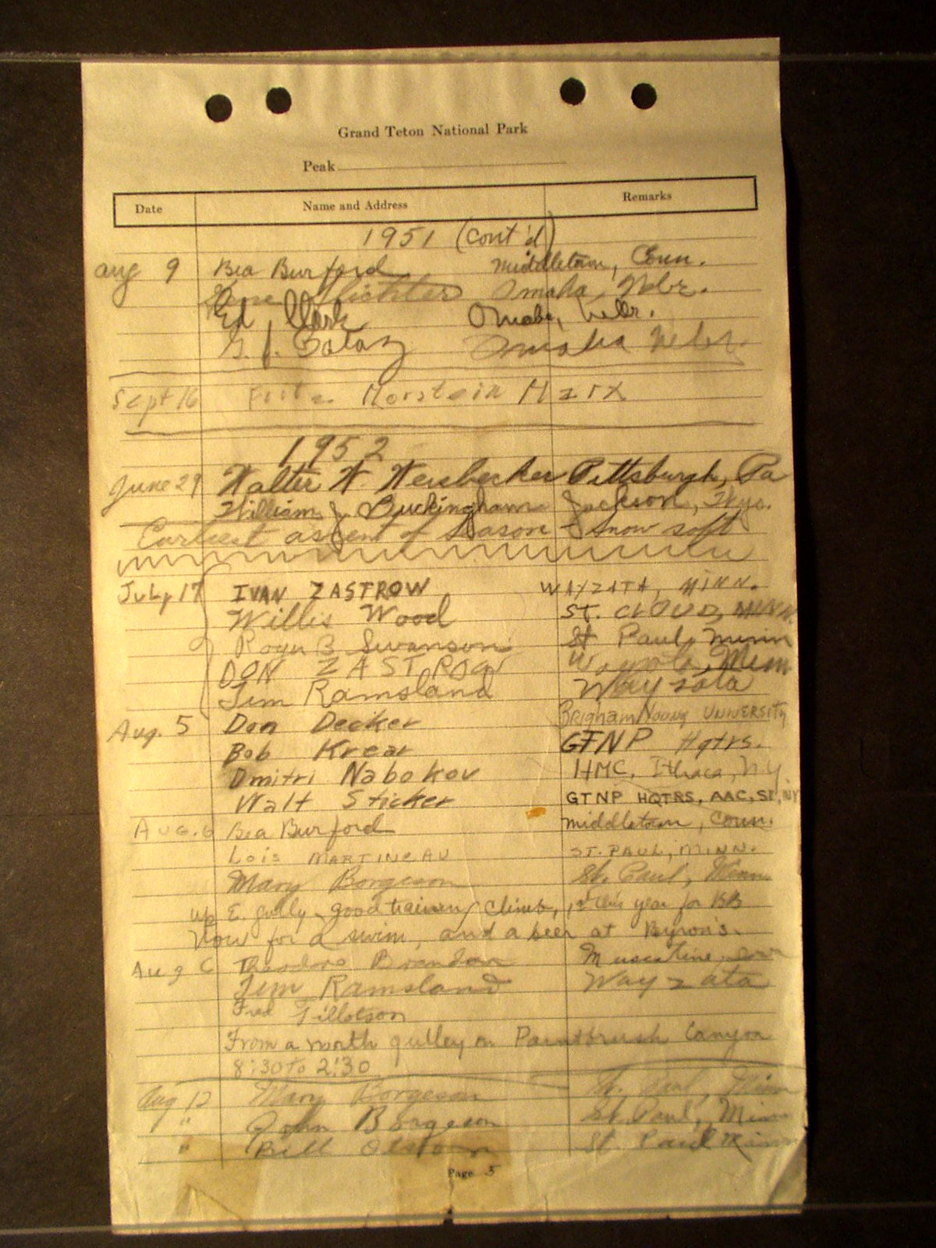 Grand Teton National Park
Peak
Date Name and Address Remarks
1951 (Cont'd)
Aug 9 Bea Burford Middletown, Conn.
Omaha, Nebr.
Ed Clark Omaha, Nebr.
G. J. Omaha Nebr.
Sept 16 Morstein Marx
1952
June 29 Walter W. Weisbecker Pittsburgh, Pa
William J. Buckingham Jackson, Wyo.
Earliest ascent of Season - Snow soft
July 17 IVAN ZASTROW WAYZATA, MINN.
Willis Wood ST. CLOUD, MINN
Roger B. Swanson St Paul, Minn
DON ZASTROW Wayzata, Minn
Jim Ramsland Wayzata
Aug. 5 Don Decker Brigham Young UNIVERSITY
Bob Krear GTNP Hqtrs.
Dmitri Nabokov HMC, Ithaca, N.Y.
Walt Sticker GTNP HQTRS, AAC,
Aug. 6 Bea Burford Middletown, Conn.
Lois MARTINEAU ST. PAUL, MINN.
Mary Borgeson St. Paul, Minn
up E. gully, good training climb, 1st this year for BB
Now for a swim, and a beer at Byron's.
Aug 6 Theodore Brandon Muscatine, Iowa
Jim Ramsland Wayzata
Fred Tillotson
From a north gulley on Paintbrush Canyon
8:30 to 2:30
Aug 12 Mary Borgeson St. Paul, Minn
" John Borgeson St. Paul, Minn
" Bill St. Paul Minn
Page 5